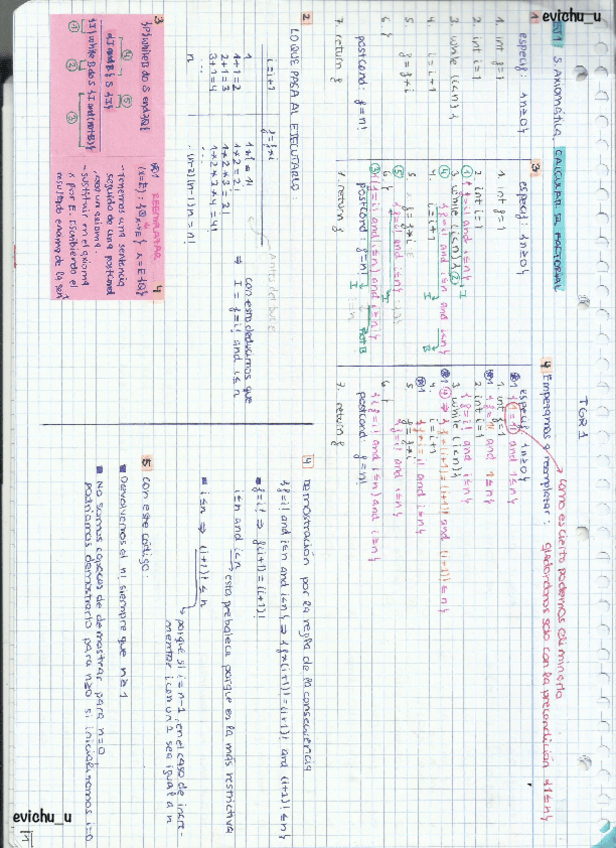 evichu_u
TGR 1
S. Axiomática CALCULAR EL FACTORIAL
1
especif: {n≥0}
1. int f=1
2. int i=1
3. while (i<n) {
4. i=i+1
5 f=f*i
6. }
postcond: f=n!
7. return f
3
especif: {n≥0}
1. int f=1
2. int i=1
① {f=i! and i≤n}
3 while (i<n) {
④ {f=i! and i≤n and i<n}
4. i=i+1
5. f=f*i
⑤ {f=i! and i≤n}
6. }
③ {f=i! and (i≤n) and i≥n}
postcond f=n!
7. return f
4 Empezamos a reemplazar:
como es cierto podemos eliminarlo
quedandonos solo con la precondición {1≤n}
especif: {n≥0}
{1=1! and 1≤n}
1. int f=1
{f=1! and 1≤n}
2 int i=1
{f=i! and i≤n}
3 while (i<n) {
④ ⇒ {f*(i+1)=(i+1)! and (i+1)≤n}
4. i=i+1
{f*i=i! and i≤n}
5 f=f*i
{f=i! and i≤n}
6 }
{f=i! and (i≤n) and i≥n}
postcond f=n!
7. return f
2 LO QUE PASA AL EJECUTARLO
i=i+1 f=f*i
1 1 = 1! Antes del bucle
1+1=2 1*2=2!
2+1=3 1*2*3=3!
3+1=4 1*2*3*4=4!
...
n ...(n-2)(n-1)n=n!
con esto deducimos que
⇒ I = f=i! and i≤n
3
{P} while B do S end {Q}
{I and B} S {I}
{I} while B do S {I and (not B)}
REEMPLAZAR 4
(x=E): {Qx→E} x=E {Q}
- Tenemos una sentencia
seguido de una postcond
como un axioma
- sustituir en el axioma
x por E, escribiendo el
resultado encima de la sen
4 Demostración por la regla de la consecuencia
{f=i! and i≤n and i<n} ⇒ {f*(i+1)!=(i+1)! and (i+1)!≤n}
f=i! ⇒ f(i+1)=(i+1)!
i≤n and i<n
esta prebaleca porque en la más restrictiva
i≤n ⇒ (i+1)!≤n
porque si i=n-1, en el caso de incre-
mentar i con un 1 sea igual a n
5 con este código:
Devolvemos el n! siempre que n≥1
No somos capaces de demostrar para n=0
podriamos demostrarlo para n≥0 si inicializamos i=0
evichu_u